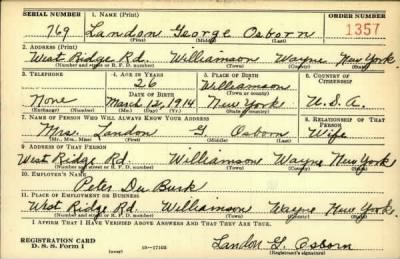 SERIAL NUMBER 1. NAME (Print) ORDER NUMBER
769 Landon George Osborn 1357
(First) (Middle) (Last)
2. ADDRESS (Print)
West Ridge Rd. Williamson Wayne New York
(Number and street or R. F. D. number) (Town) (County) (State)
3. TELEPHONE 4. AGE IN YEARS 5. PLACE OF BIRTH 6. COUNTRY OF CITIZENSHIP
26 Williamson
DATE OF BIRTH (Town or county)
None March, 12, 1914 New York U.S.A.
(Exchange) (Number) (Mo.) (Day) (Yr.) (State or country)
7. NAME OF PERSON WHO WILL ALWAYS KNOW YOUR ADDRESS 8. RELATIONSHIP OF THAT PERSON
Mrs. Landon G. Osborn Wife
(Mr., Mrs., Miss) (First) (Middle) (Last)
9. ADDRESS OF THAT PERSON
West Ridge Rd. Williamson Wayne New York
(Number and street or R. F. D. number) (Town) (County) (State)
10. EMPLOYER'S NAME
Peter Du Burk
11. PLACE OF EMPLOYMENT OR BUSINESS
West Ridge Rd. Williamson Wayne New York.
(Number and street or R. F. D. number) (Town) (County) (State)
I AFFIRM THAT I HAVE VERIFIED ABOVE ANSWERS AND THAT THEY ARE TRUE.
REGISTRATION CARD
D. S. S. FORM 1 (over) 16—17105 Landon G. Osborn
(Registrant's signature)